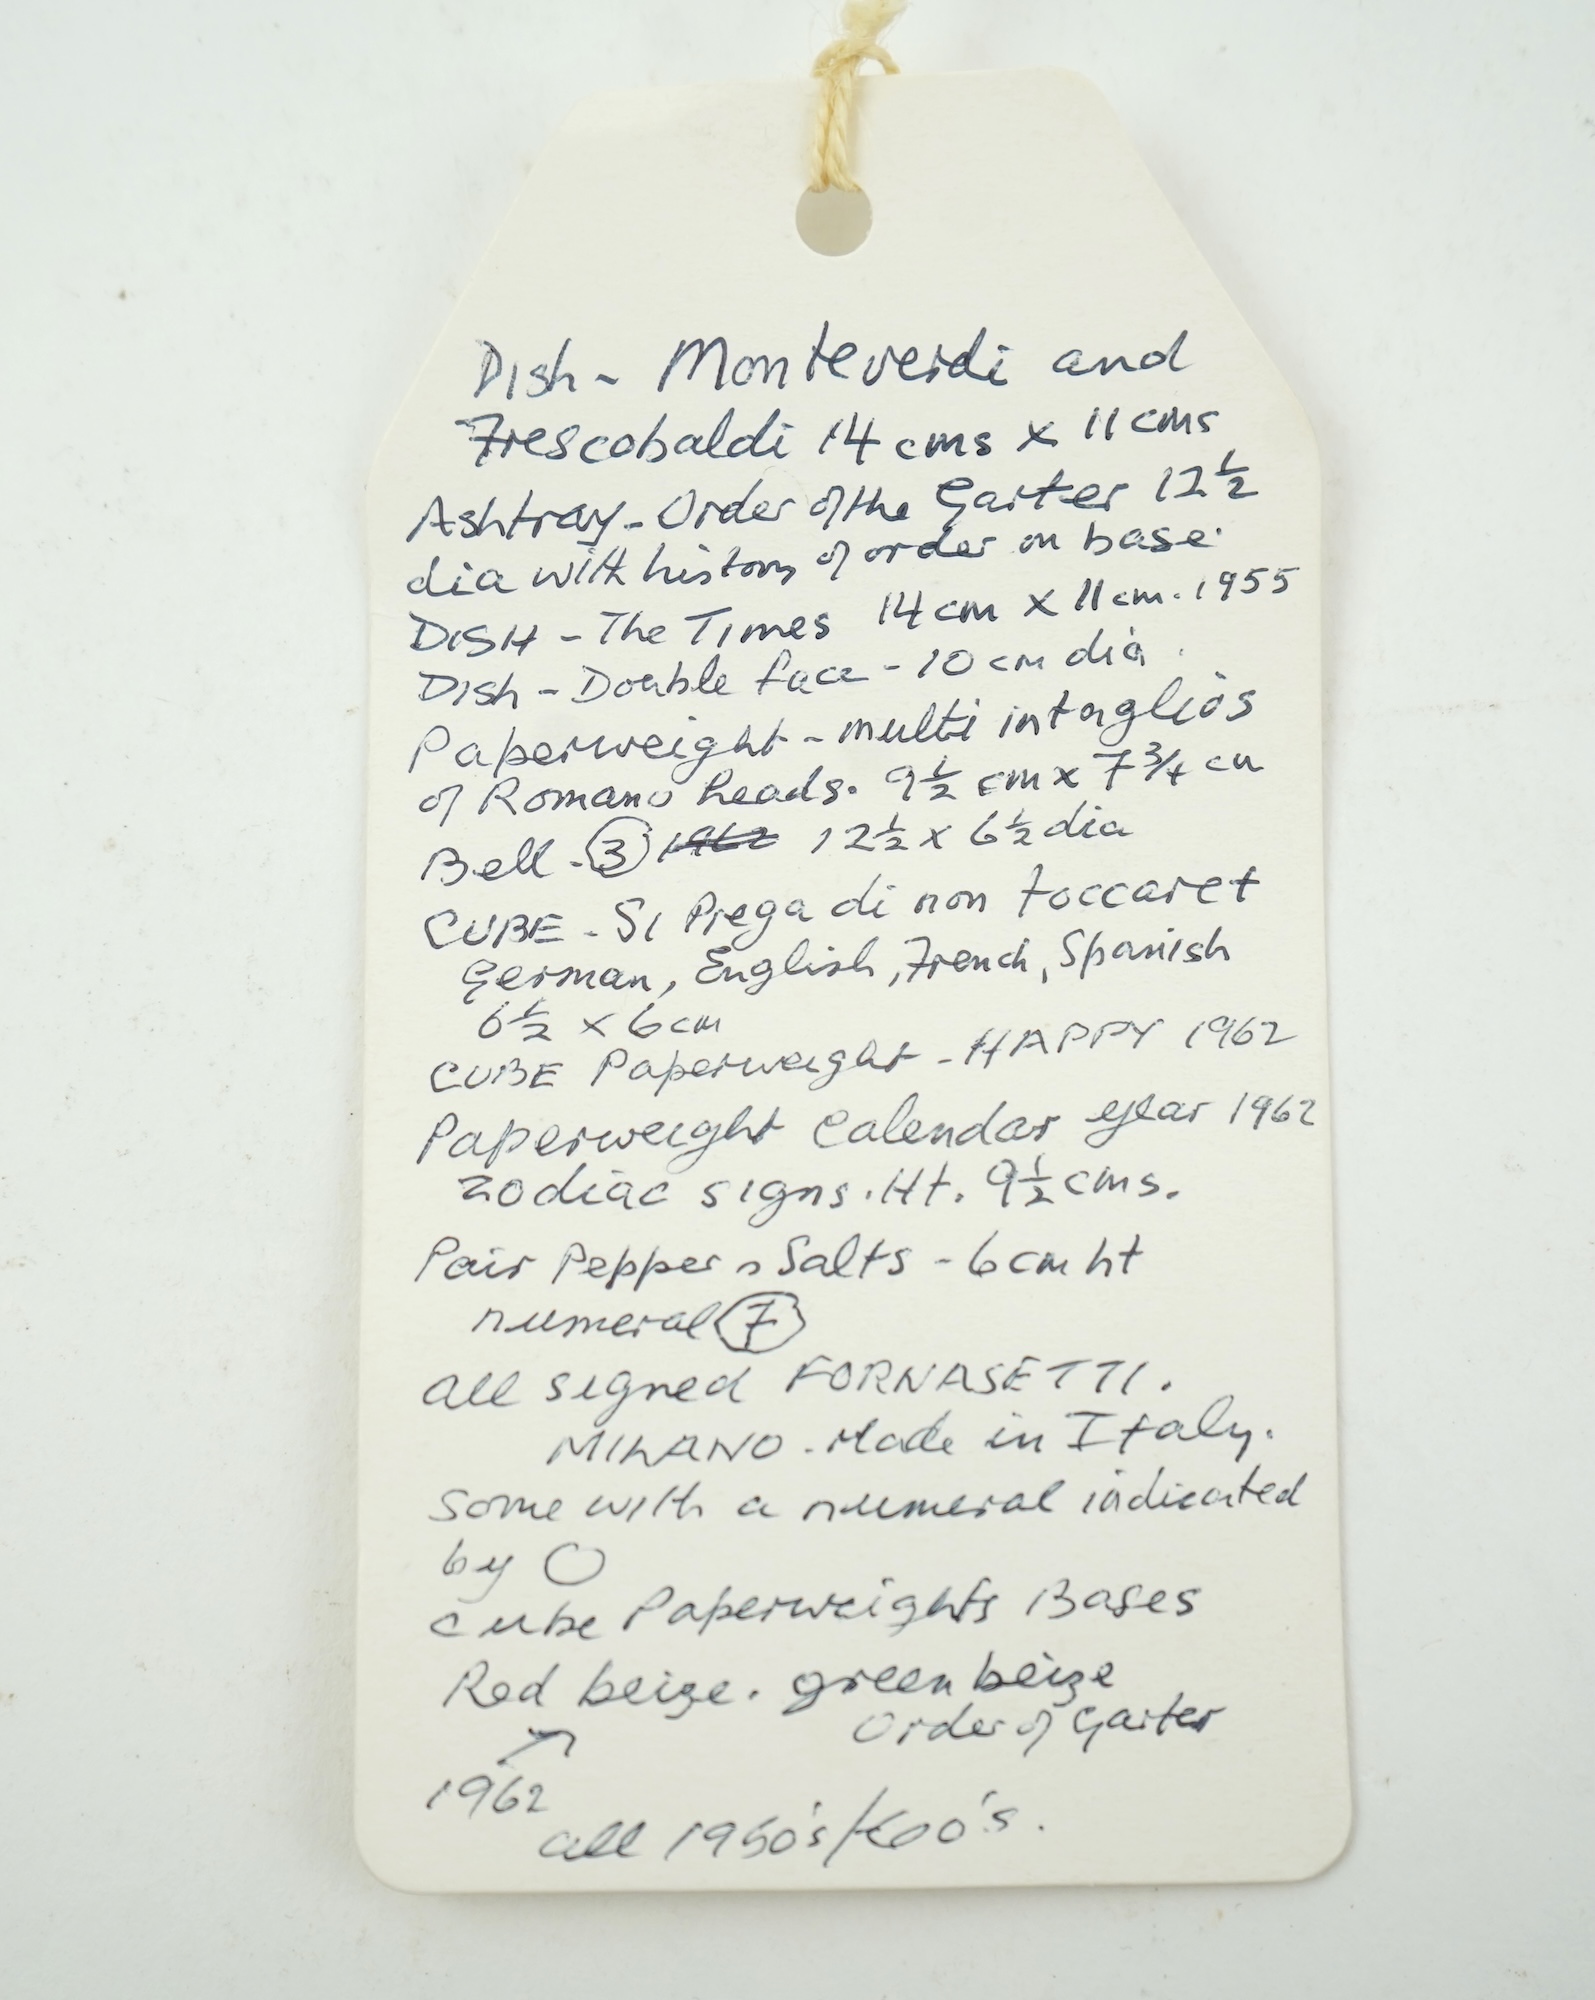 Dish - Monteverdi and
Frescobaldi 14 cms x 11 cms
Ashtray - Order of the Garter 12½
dia with history of order on base.
DISH - The Times 14 cm x 11 cm. 1955
Dish - Double face - 10 cm dia.
Paperweight - multi intaglios
of Romano heads. 9½ cm x 7¾ cm
Bell - ③ 1962 12½ x 6½ dia
CUBE - Si Prega di non toccaret
German, English, French, Spanish
6½ x 6 cm
CUBE Paperweight - HAPPY 1962
Paperweight Calendar year 1962
zodiac signs. Ht. 9½ cms.
Pair Pepper n Salts - 6 cm ht
numeral ⑦
all signed FORNASETTI.
MILANO. Made in Italy.
Some with a numeral indicated
by ○
cube Paperweights Bases
Red beize. green beize
Order of Garter
1962
all 1950's/60's.